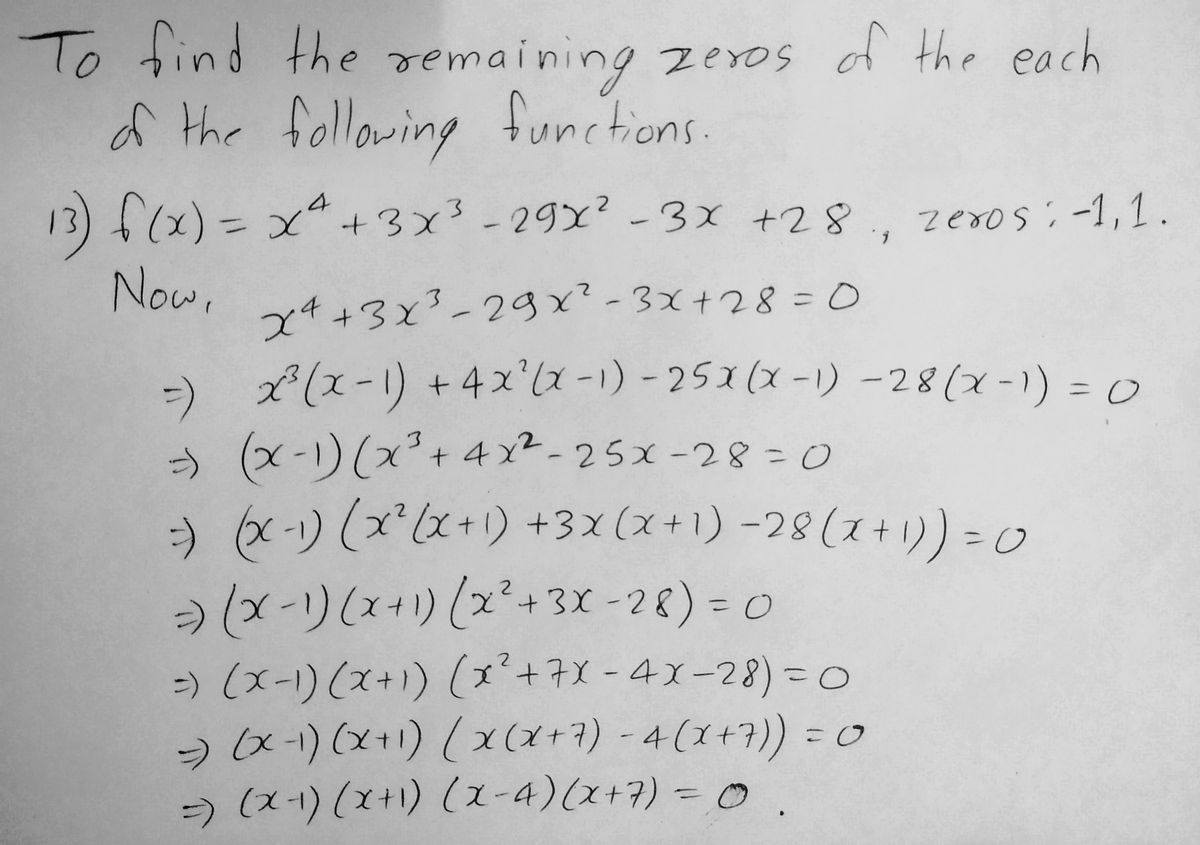 To find the remaining zeros of the each
of the following functions.
13) f(x) = x⁴ + 3x³ - 29x² - 3x + 28 ., zeros: -1, 1.
Now, x⁴ + 3x³ - 29x² - 3x + 28 = 0
⇒ x³(x-1) + 4x²(x-1) - 25x(x-1) - 28(x-1) = 0
⇒ (x-1)(x³ + 4x² - 25x - 28 = 0
⇒ (x-1)(x²(x+1) + 3x(x+1) - 28(x+1)) = 0
⇒ (x-1)(x+1)(x² + 3x - 28) = 0
⇒ (x-1)(x+1)(x² + 7x - 4x - 28) = 0
⇒ (x-1)(x+1)(x(x+7) - 4(x+7)) = 0
⇒ (x-1)(x+1)(x-4)(x+7) = 0.